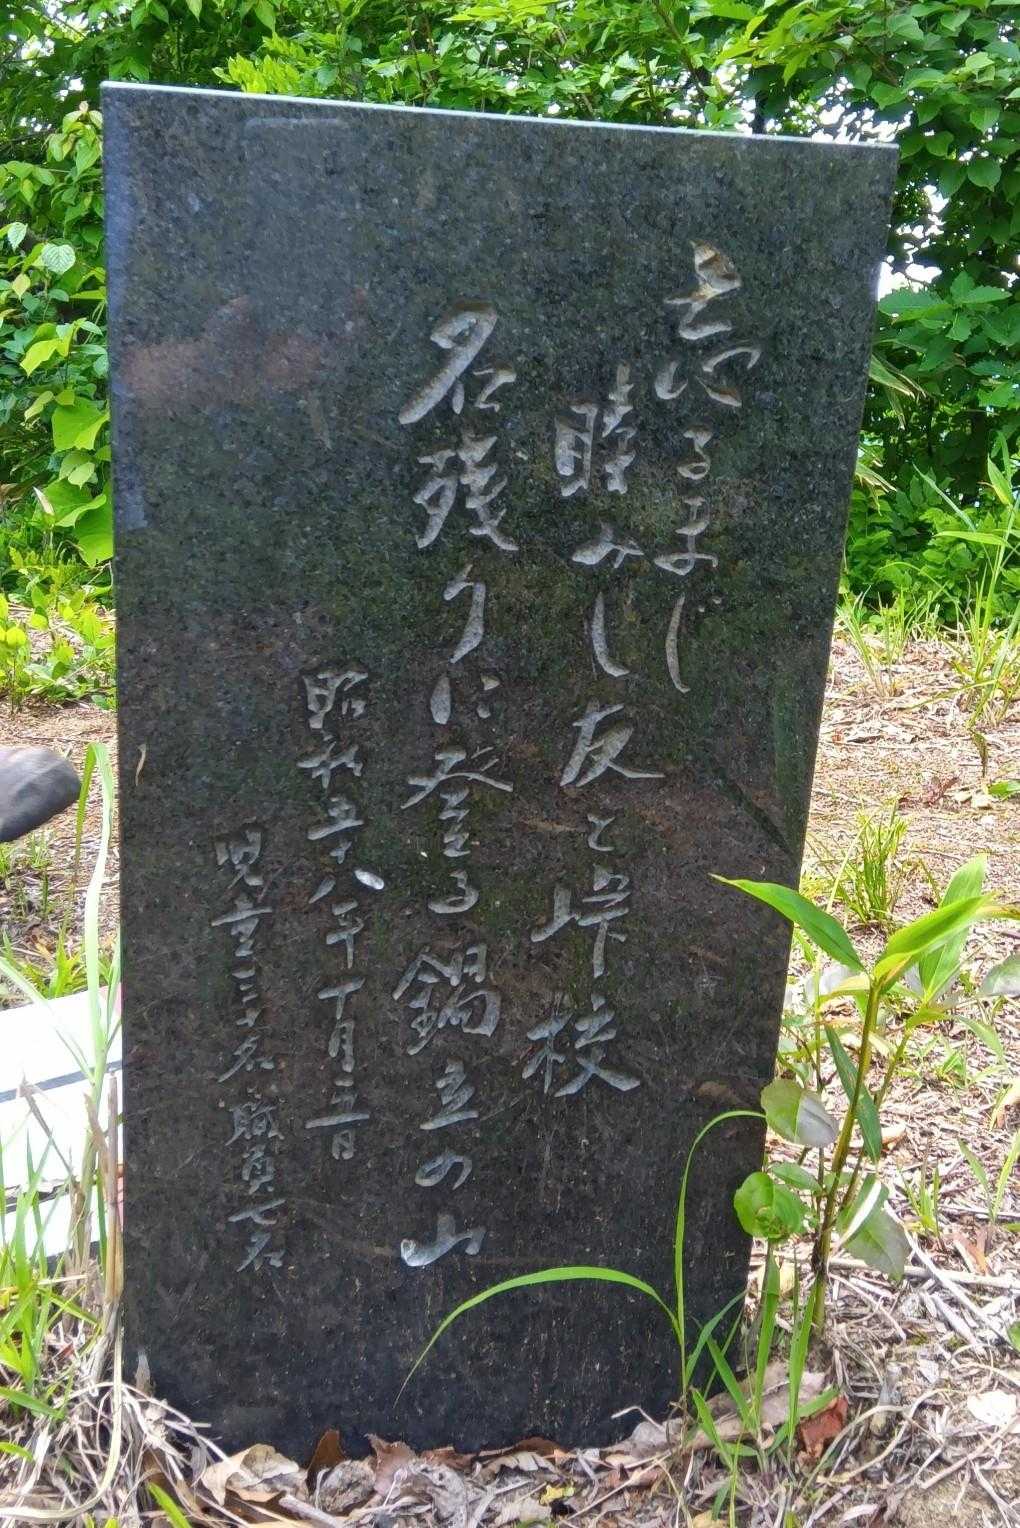 忘るまじ
睦みし友と峠校
名残りに登る鍋立の山
昭和五十八年十月五日
児童三十名 職員七名